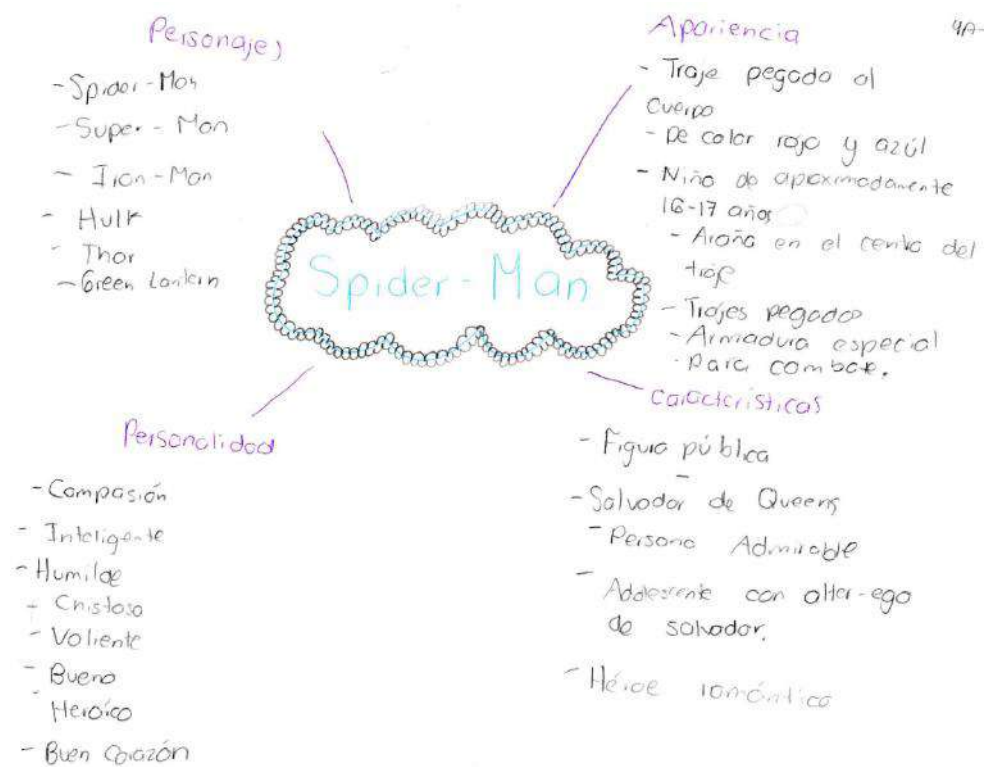 Personajes
- Spider-Man
- Super-Man
- Iron-Man
- Hulk
- Thor
- Green Lantern
Apariencia
- Traje pegado al
cuerpo
- De color rojo y azúl
- Niño de aproximadamente
16-17 años
- Araña en el centro del
traje
- Trajes pegados
- Armadura especial
para combate.
Spider-Man
Personalidad
- Compasión
- Inteligente
- Humilde
- Chistoso
- Valiente
- Bueno
- Heróico
- Buen Corazón
Características
- Figura pública
- Salvador de Queens
- Persona Admirable
- Adolescente con alter-ego
de salvador.
- Héroe romántico